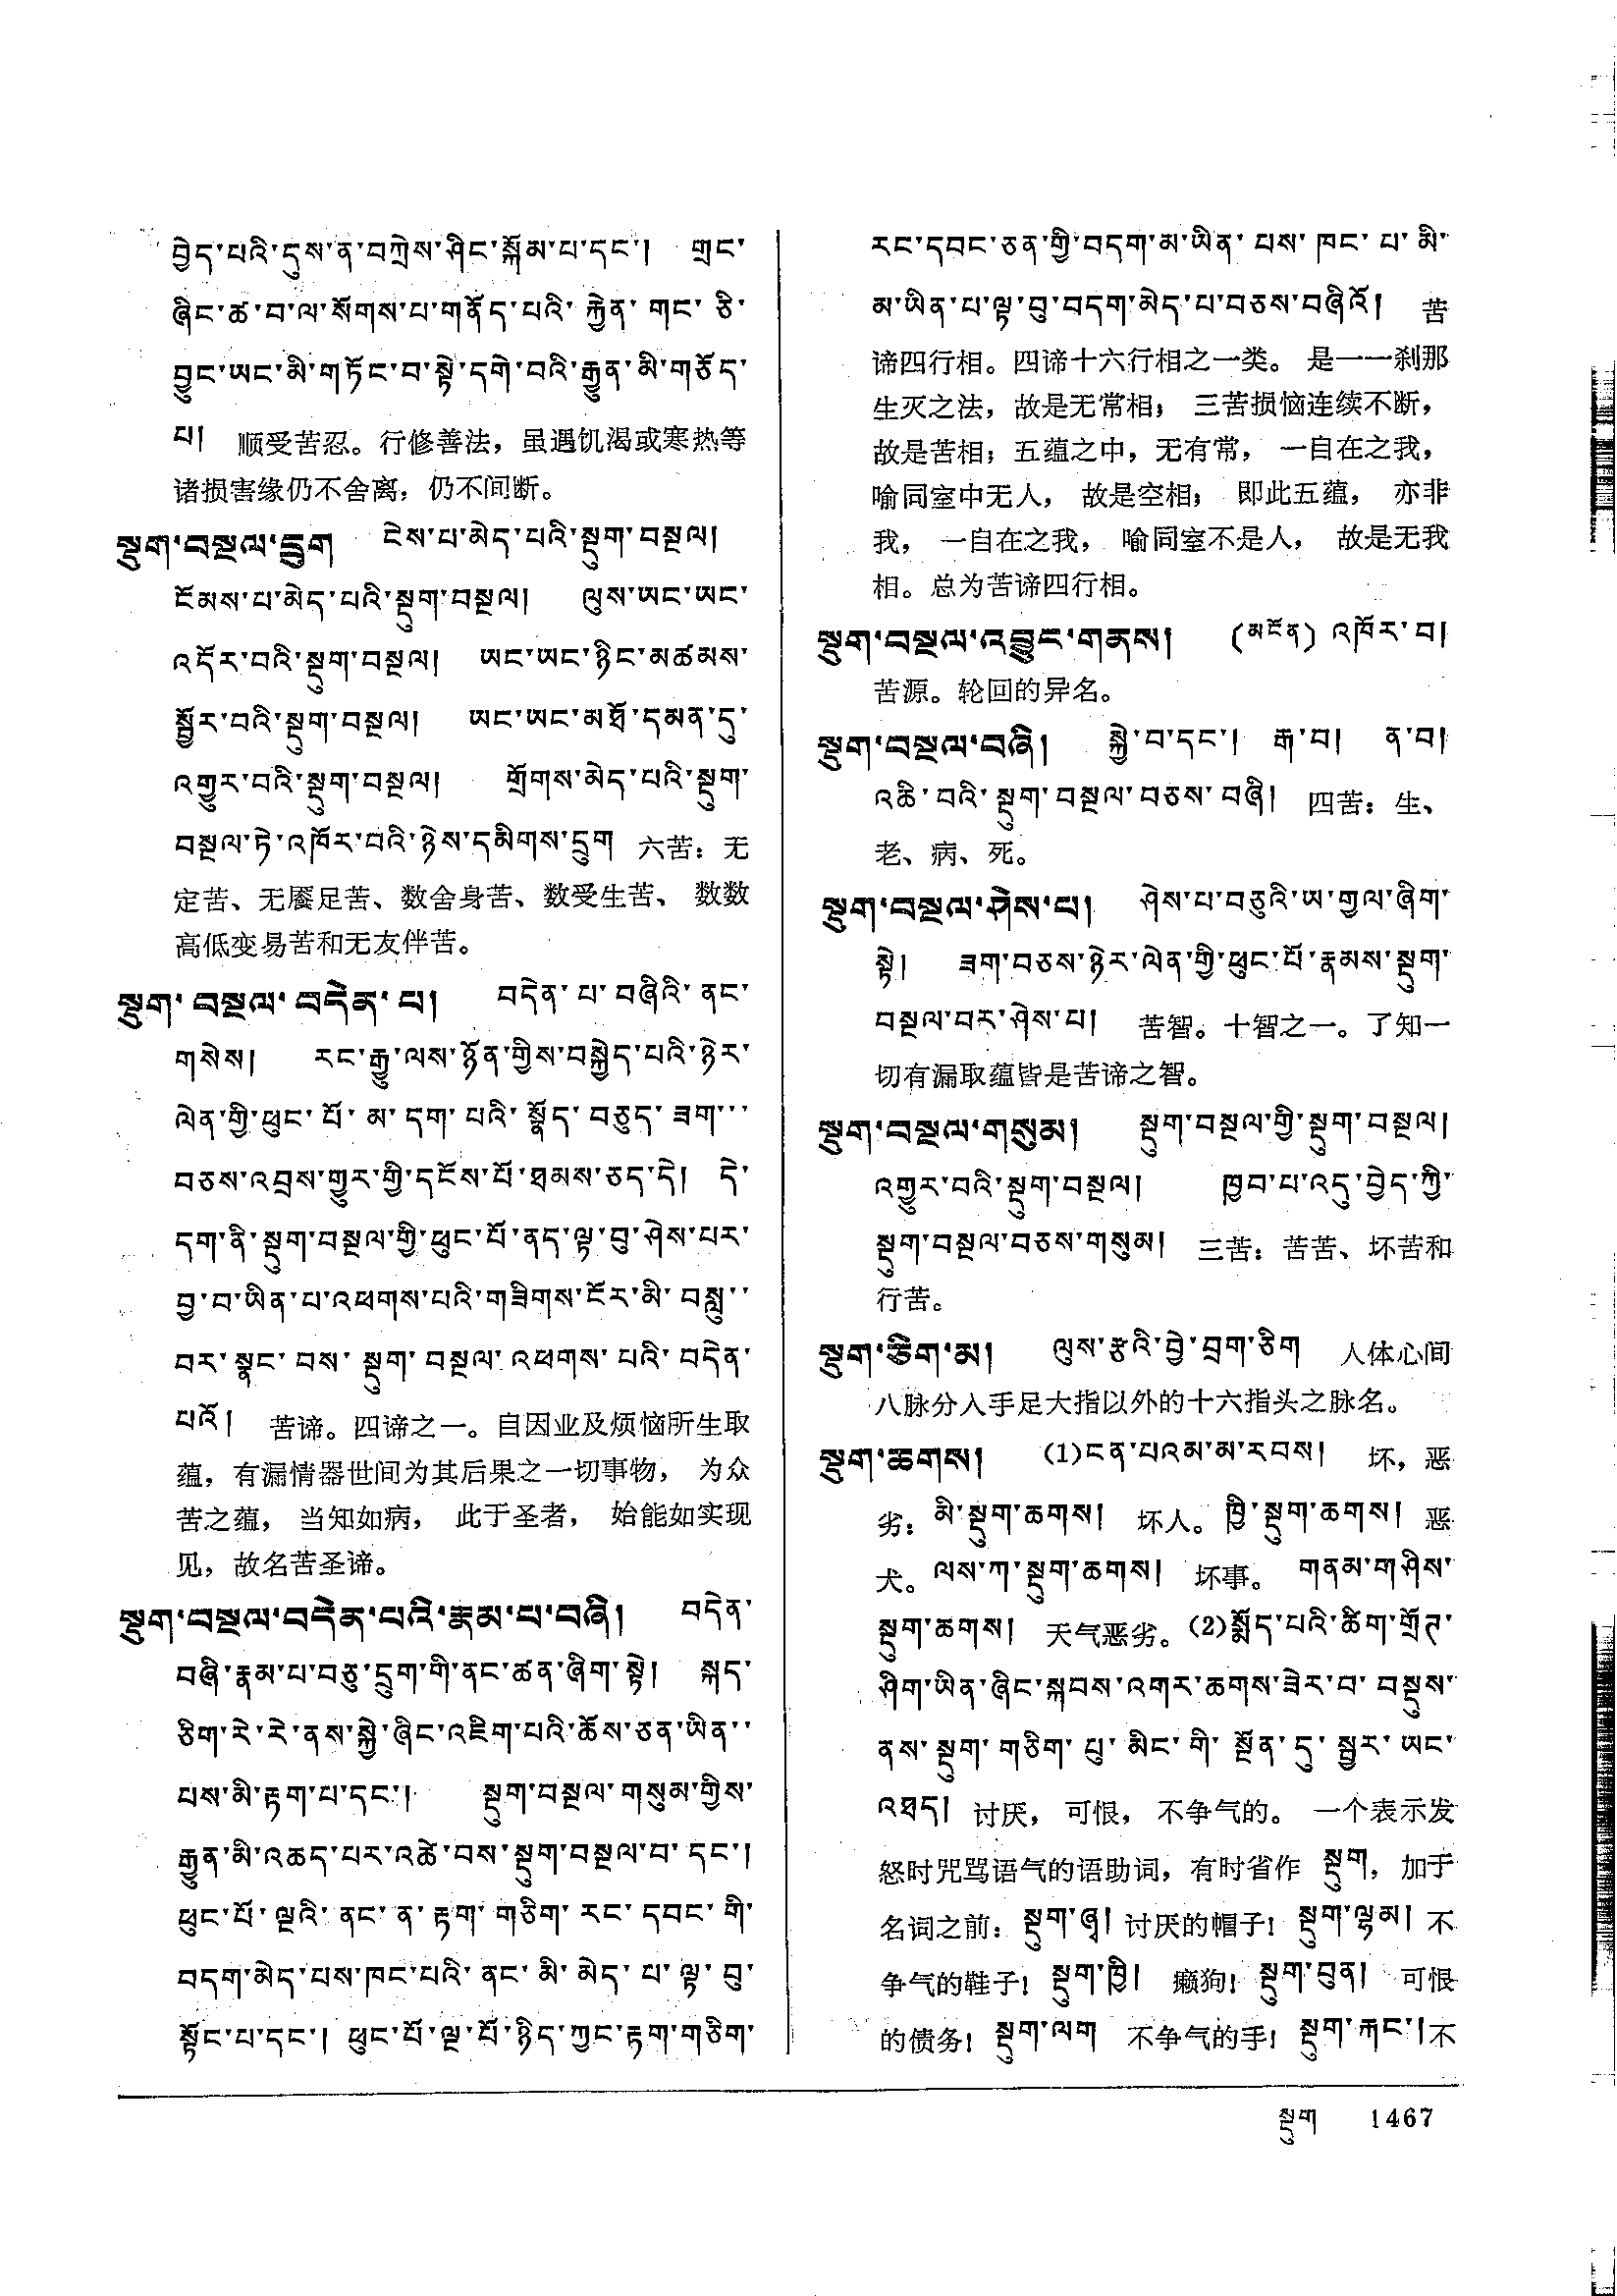 བྱེད་པའི་དུས་ན་བཀྲེས་ཤིང་སྐོམ་པ་དང་། གྲང་
ཞིང་ཚ་བ་ལ་སོགས་པ་གནོད་པའི་རྐྱེན་གང་ཅི་
བྱུང་ཡང་མི་གཏོང་བ་སྟེ་དགེ་བའི་རྒྱུན་མི་གཅོད་
པ། 顺受苦忍。行修善法，虽遇饥渴或寒热等
诸损害缘仍不舍离，仍不间断。
སྡུག་བསྔལ་དྲུག ངེས་པ་མེད་པའི་སྡུག་བསྔལ།
ངོམས་པ་མེད་པའི་སྡུག་བསྔལ། ལུས་ཡང་ཡང་
འདོར་བའི་སྡུག་བསྔལ། ཡང་ཡང་ཉིང་མཚམས་
སྦྱོར་བའི་སྡུག་བསྔལ། ཡང་ཡང་མཐོ་དམན་དུ་
འགྱུར་བའི་སྡུག་བསྔལ། གྲོགས་མེད་པའི་སྡུག་
བསྔལ་ཏེ་འཁོར་བའི་ཉེས་དམིགས་དྲུག 六苦：无
定苦、无餍足苦、数舍身苦、数受生苦、数数
高低变易苦和无友伴苦。
སྡུག་བསྔལ་བདེན་པ། བདེན་པ་བཞིའི་ནང་
གསེས། རང་རྒྱུ་ལས་ཉོན་གྱིས་བསྐྱེད་པའི་ཉེར་
ལེན་གྱི་ཕུང་པོ་མ་དག་པའི་སྣོད་བཅུད་ཟག་་་
བཅས་འབྲས་གྱུར་གྱི་དངོས་པོ་ཐམས་ཅད་དེ། དེ་
དག་ནི་སྡུག་བསྔལ་གྱི་ཕུང་པོ་ནད་ལྟ་བུ་ཤེས་པར་
བྱ་བ་ཡིན་པ་འཕགས་པའི་གཟིགས་ངོར་མི་བསླུ་་
བར་སྣང་བས་སྡུག་བསྔལ་འཕགས་པའི་བདེན་
པའོ། 苦谛。四谛之一。自因业及烦恼所生取
蕴，有漏情器世间为其后果之一切事物，为众
苦之蕴，当知如病，此于圣者，始能如实现
见，故名苦圣谛。
སྡུག་བསྔལ་བདེན་པའི་རྣམ་པ་བཞི། བདེན་
བཞི་རྣམ་པ་བཅུ་དྲུག་གི་ནང་ཚན་ཞིག་སྟེ། སྐད་
ཅིག་རེ་རེ་ནས་སྐྱེ་ཞིང་འཇིག་པའི་ཆོས་ཅན་ཡིན་་
པས་མི་རྟག་པ་དང་། སྡུག་བསྔལ་གསུམ་གྱིས་
རྒྱུན་མི་འཆད་པར་འཚེ་བས་སྡུག་བསྔལ་བ་དང་།
ཕུང་པོ་ལྔའི་ནང་ན་རྟག་གཅིག་རང་དབང་གི་
བདག་མེད་པས་ཁང་པའི་ནང་མི་མེད་པ་ལྟ་བུ་
སྟོང་པ་དང་། ཕུང་པོ་ལྔ་པོ་ཉིད་ཀྱང་རྟག་གཅིག་
རང་དབང་ཅན་གྱི་བདག་མ་ཡིན་པས་ཁང་པ་མི་
མ་ཡིན་པ་ལྟ་བུ་བདག་མེད་པ་བཅས་བཞིའོ། 苦
谛四行相。四谛十六行相之一类。是一一刹那
生灭之法，故是无常相；三苦损恼连续不断，
故是苦相；五蕴之中，无有常，一自在之我，
喻同室中无人，故是空相；即此五蕴，亦非
我，一自在之我，喻同室不是人，故是无我
相。总为苦谛四行相。
སྡུག་བསྔལ་འབྱུང་གནས། (མངོན) འཁོར་བ།
苦源。轮回的异名。
སྡུག་བསྔལ་བཞི། སྐྱེ་བ་དང་། རྒ་བ། ན་བ།
འཆི་བའི་སྡུག་བསྔལ་བཅས་བཞི། 四苦：生、
老、病、死。
སྡུག་བསྔལ་ཤེས་པ། ཤེས་པ་བཅུའི་ཡ་གྱལ་ཞིག་
སྟེ། ཟག་བཅས་ཉེར་ལེན་གྱི་ཕུང་པོ་རྣམས་སྡུག་
བསྔལ་བར་ཤེས་པ། 苦智。十智之一。了知一
切有漏取蕴皆是苦谛之智。
སྡུག་བསྔལ་གསུམ། སྡུག་བསྔལ་གྱི་སྡུག་བསྔལ།
འགྱུར་བའི་སྡུག་བསྔལ། ཁྱབ་པ་འདུ་བྱེད་ཀྱི་
སྡུག་བསྔལ་བཅས་གསུམ། 三苦：苦苦、坏苦和
行苦。
སྡུག་ཅིག་མ། ལུས་རྩའི་བྱེ་བྲག་ཅིག 人体心间
八脉分入手足大指以外的十六指头之脉名。
སྡུག་ཆགས། (1)ངན་པའམ་མ་རབས། 坏，恶
劣：མི་སྡུག་ཆགས། 坏人。ཁྱི་སྡུག་ཆགས། 恶
犬。ལས་ཀ་སྡུག་ཆགས། 坏事。གནམ་གཤིས་
སྡུག་ཆགས། 天气恶劣。(2)སྨོད་པའི་ཚིག་གྲོཊ་
ཤིག་ཡིན་ཞིང་སྐབས་འགར་ཆགས་ཟེར་བ་བསྡུས་
ནས་སྡུག་གཅིག་པུ་མིང་གི་སྔོན་དུ་སྦྱར་ཡང་
འཐད། 讨厌，可恨，不争气的。一个表示发
怒时咒骂语气的语助词，有时省作 སྡུག，加于
名词之前：སྡུག་ཞྭ། 讨厌的帽子！སྡུག་ལྷམ། 不
争气的鞋子！སྡུག་ཁྱི། 癞狗！སྡུག་བུན། 可恨
的债务！སྡུག་ལག 不争气的手！སྡུག་རྐང་།不
སྡུག 1467